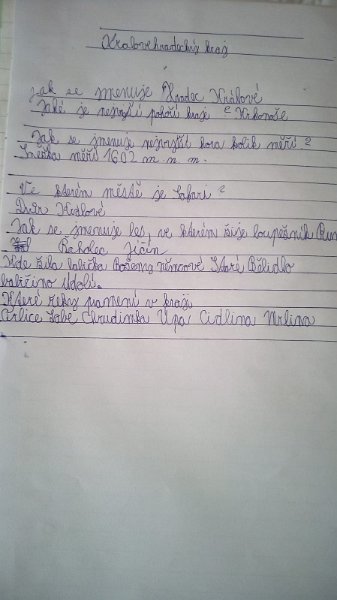 Královehradecký kraj
Jak se jmenuje Hradec Králové
Jaké je nejvyšší pohoří kraje ? Krkonoše
Jak se jmenuje nejvyšší hora kolik měří ?
Sněžka měří 1602 m n. m.
Ve kterém městě je Safari ?
Dvůr Králové
Jak se jmenuje les, ve kterém žije loupežník Rum
Řáholec Jičín
Kde žila babička Boženy němcové Staré Bělidlo
babiččino Údolí.
Které řeky pramení v kraji
Orlice Labe Chrudimka Úpa, Cidlina Mrlina